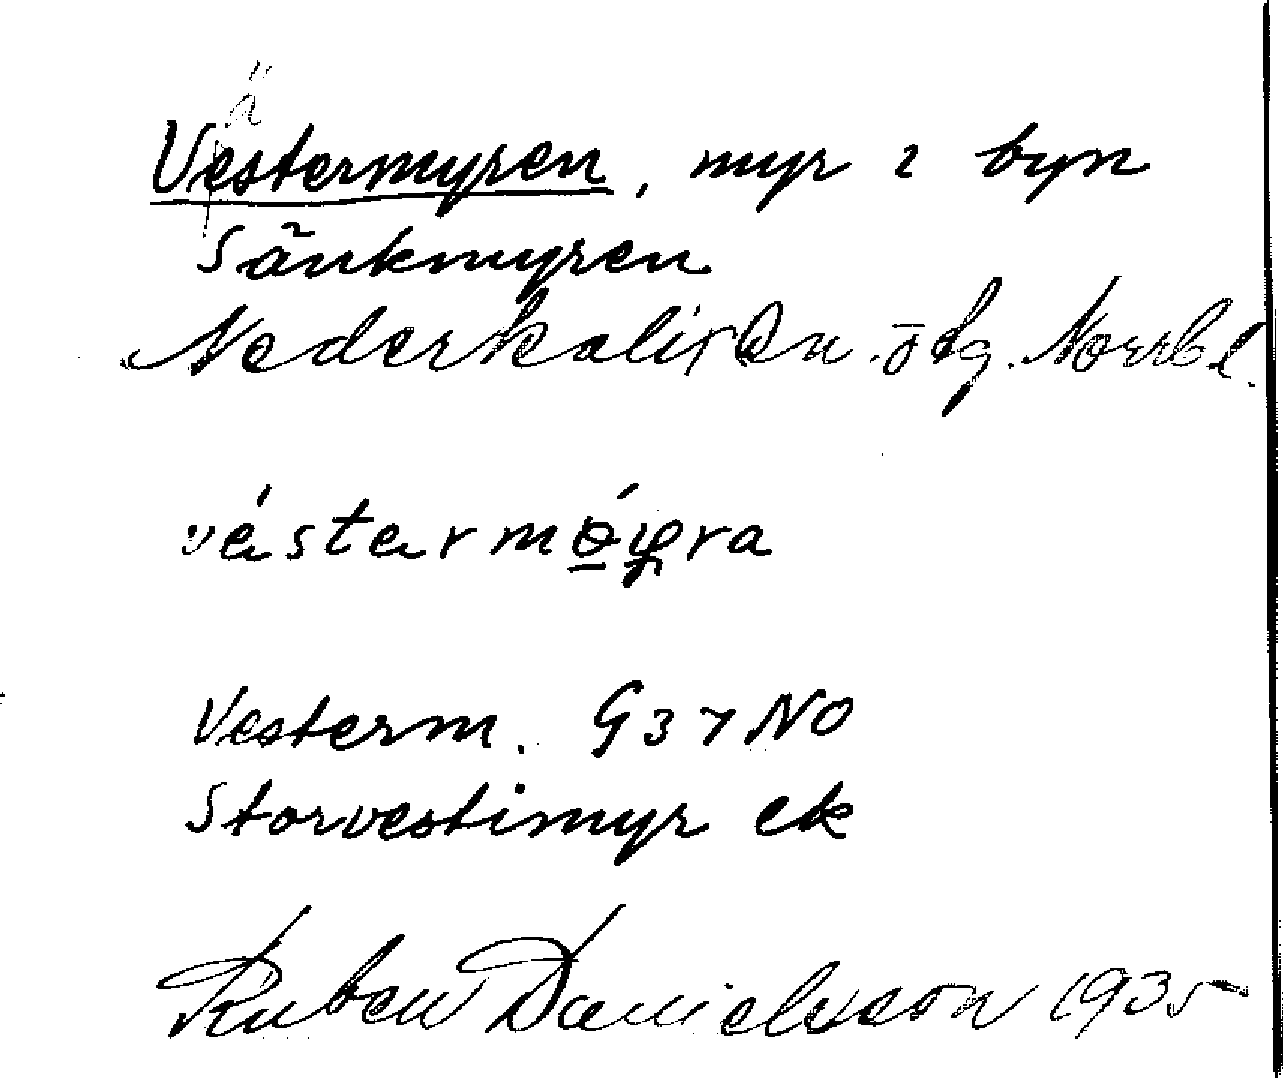 ä
Vestermyren, myr i byn
Sänkmyren
Nederkalix sn. ö tg. Norrb l.
véstermǿyra
Vesterm. G 37 NO
Storvestimyr ek
Ruben Danielsson 1935